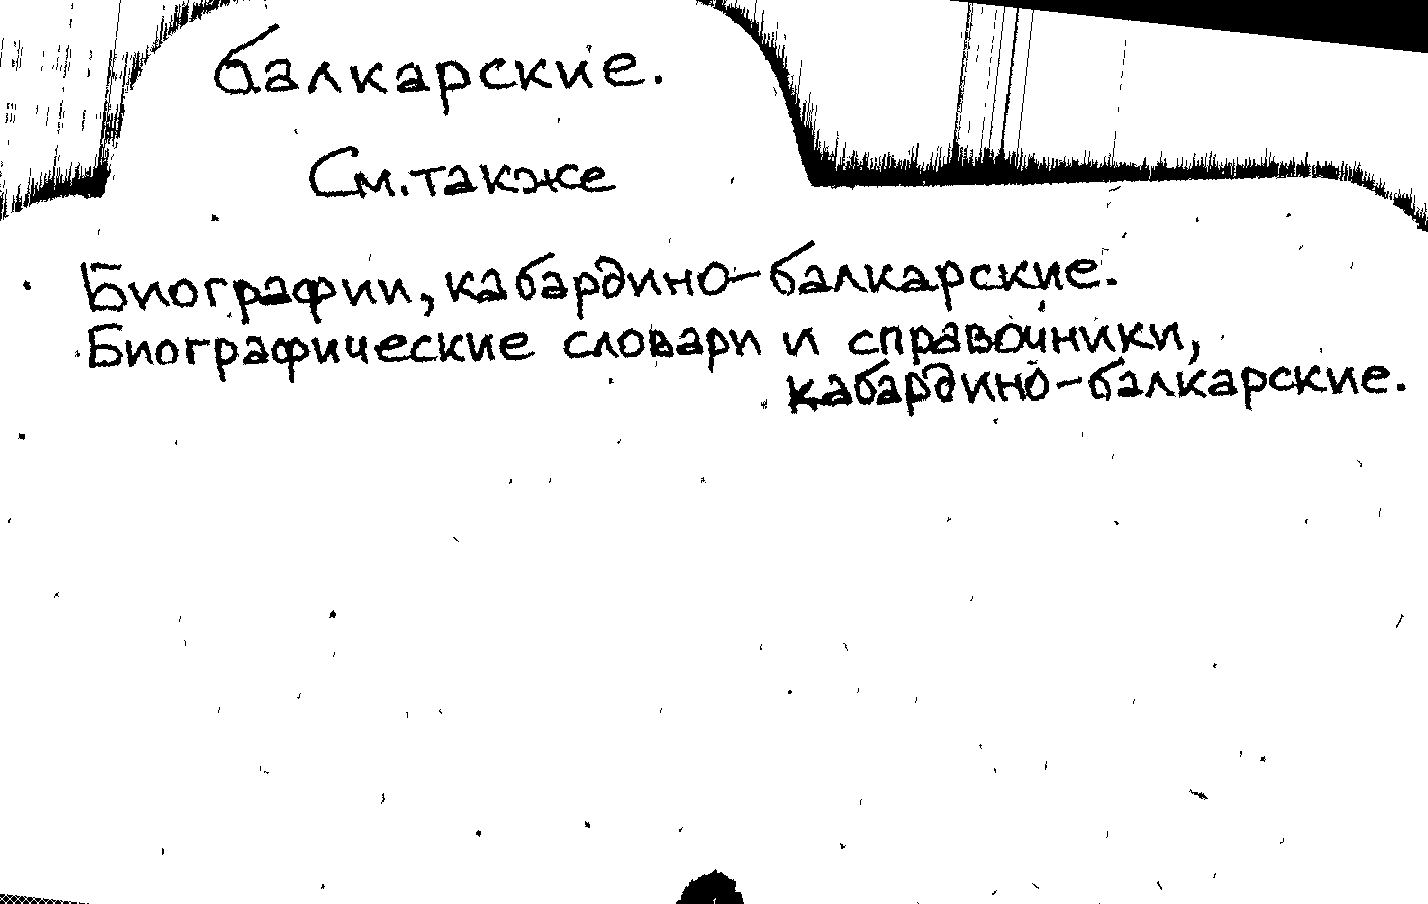 балкарские.
См. также
Биографии, кабардино-балкарские.
Биографические словари и справочники,
кабардино-балкарские.